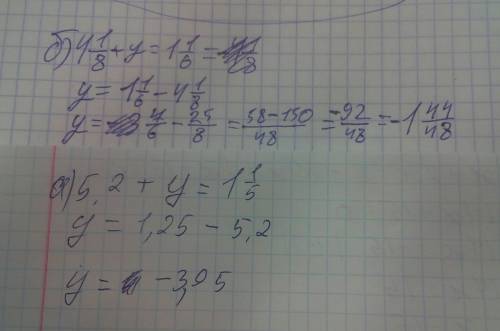 б) 4 1/8 + y = 1 1/6 =
y = 1 1/6 - 4 1/8
y = 7/6 - 25/8 = 58-150/48 = -92/48 = -1 44/48
а) 5,2 + y = 1 1/5
y = 1,25 - 5,2
y = - 3,95